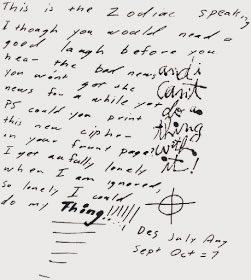 This is the Zodiac speaking
I though you would need a
good laugh before you
hear the bad news
you won't get the
news for a while yet
PS could you print
this new cipher
in your frunt page?
I get aufully lonely
when I am ignored,
so lonely I could
do my Thing!!!!!!
and i
can't
do a
thing
with
it!
Des July Aug
Sept Oct = 7